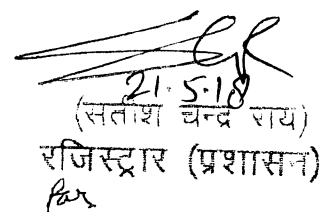 21.5.18
(सतीश चन्द्र राय)
रजिस्ट्रार (प्रशासन)